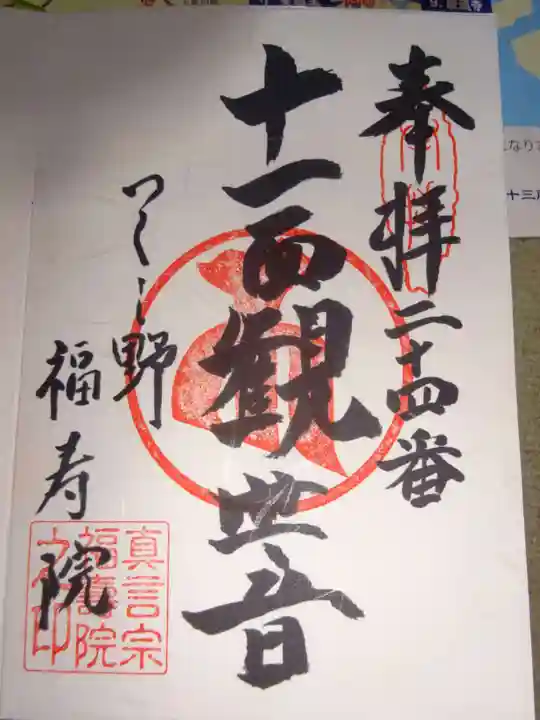 奉拝二十四番
十一面観世音
つくし野
福寿院
真言宗
福壽院
之印